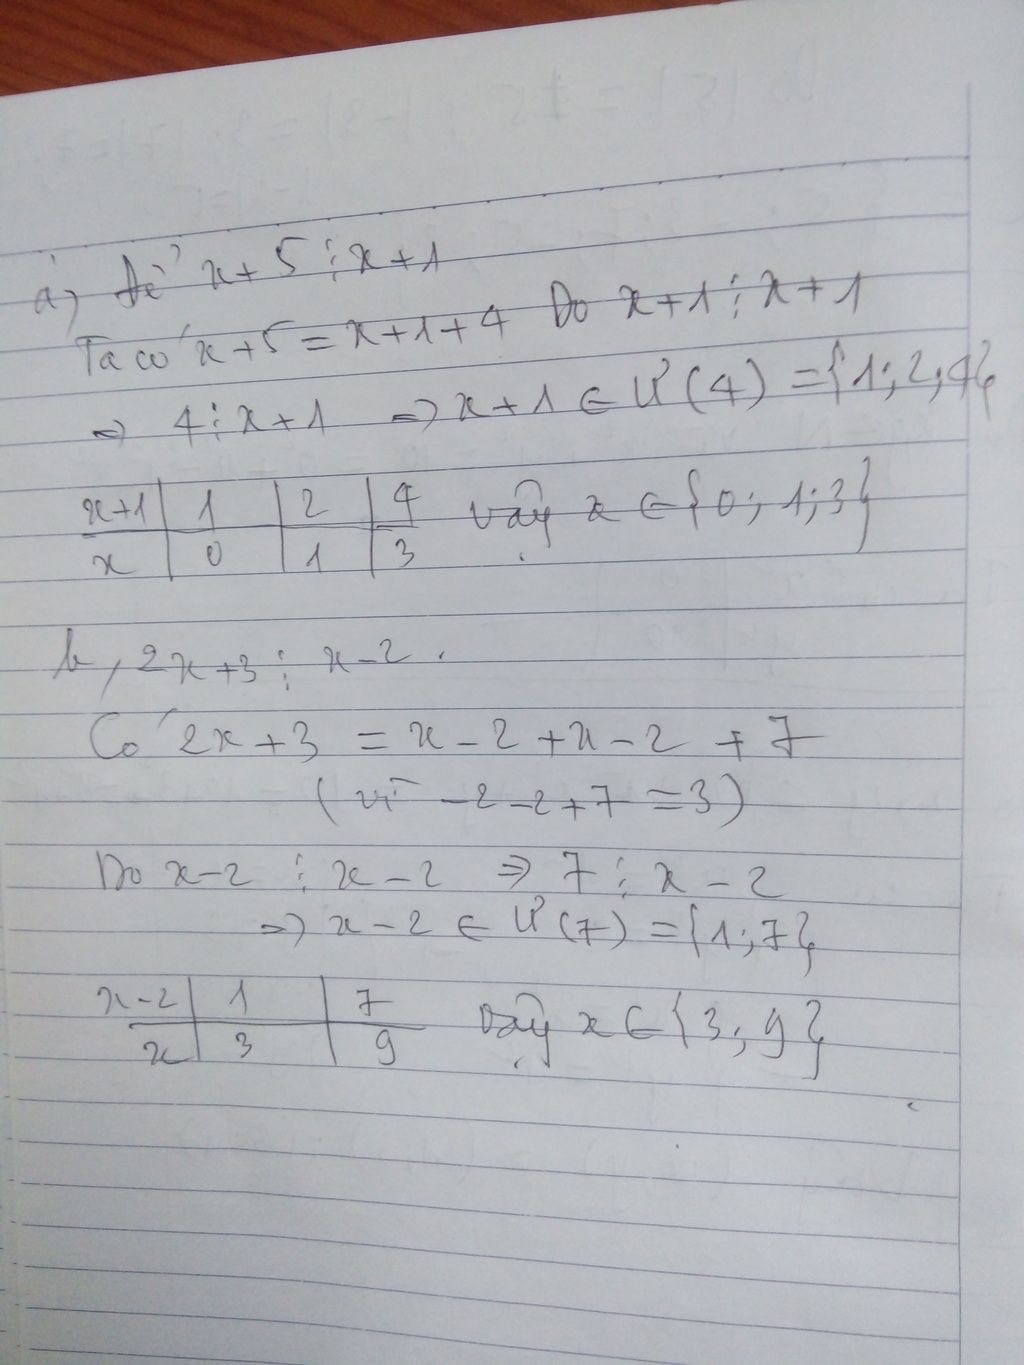 a, Để x+5 ⋮ x+1
Ta có x+5 = x+1+4 Do x+1 ⋮ x+1
=> 4 ⋮ x+1 => x+1 ∈ Ư(4) = {1; 2; 4}
x+1 | 1 | 2 | 4 Vậy x ∈ {0; 1; 3}
x | 0 | 1 | 3
b, 2x+3 ⋮ x-2.
Có 2x+3 = x-2+x-2+7
(vì -2-2+7=3)
Do x-2 ⋮ x-2 => 7 ⋮ x-2
=> x-2 ∈ Ư(7) = {1; 7}
x-2 | 1 | 7 Vậy x ∈ {3; 9}
x | 3 | 9